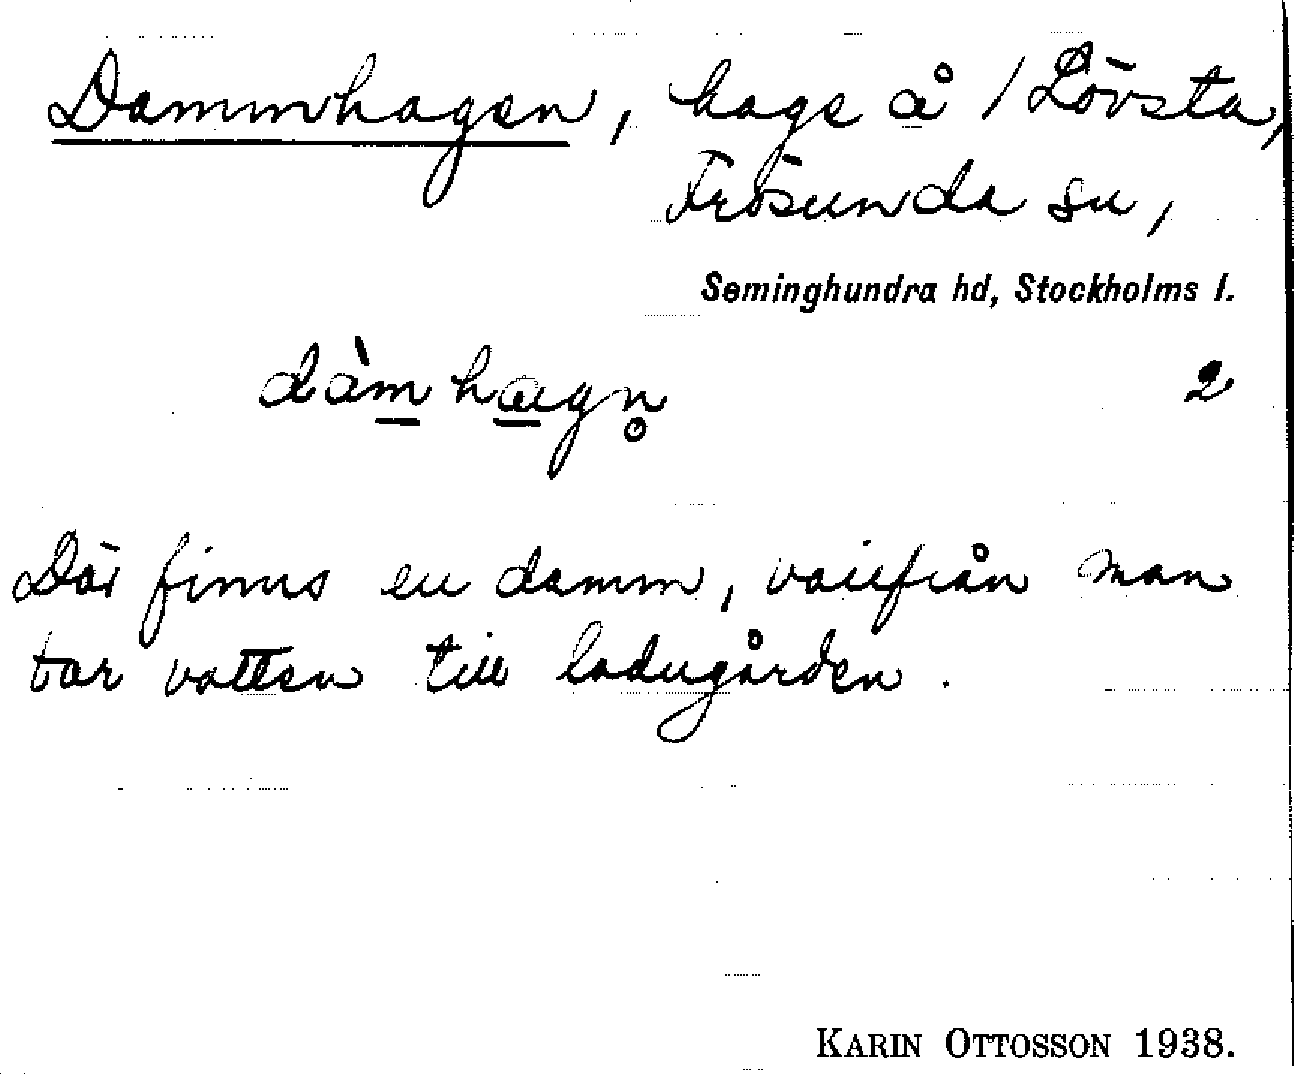 Dammhagen, hage å /Lövsta,
Frösunda sn,
Seminghundra hd, Stockholms l.
dàm̲ha̲gn̥ 2
Där finns en damm, varifrån man
tar vatten till ladugården.
KARIN OTTOSSON 1938.